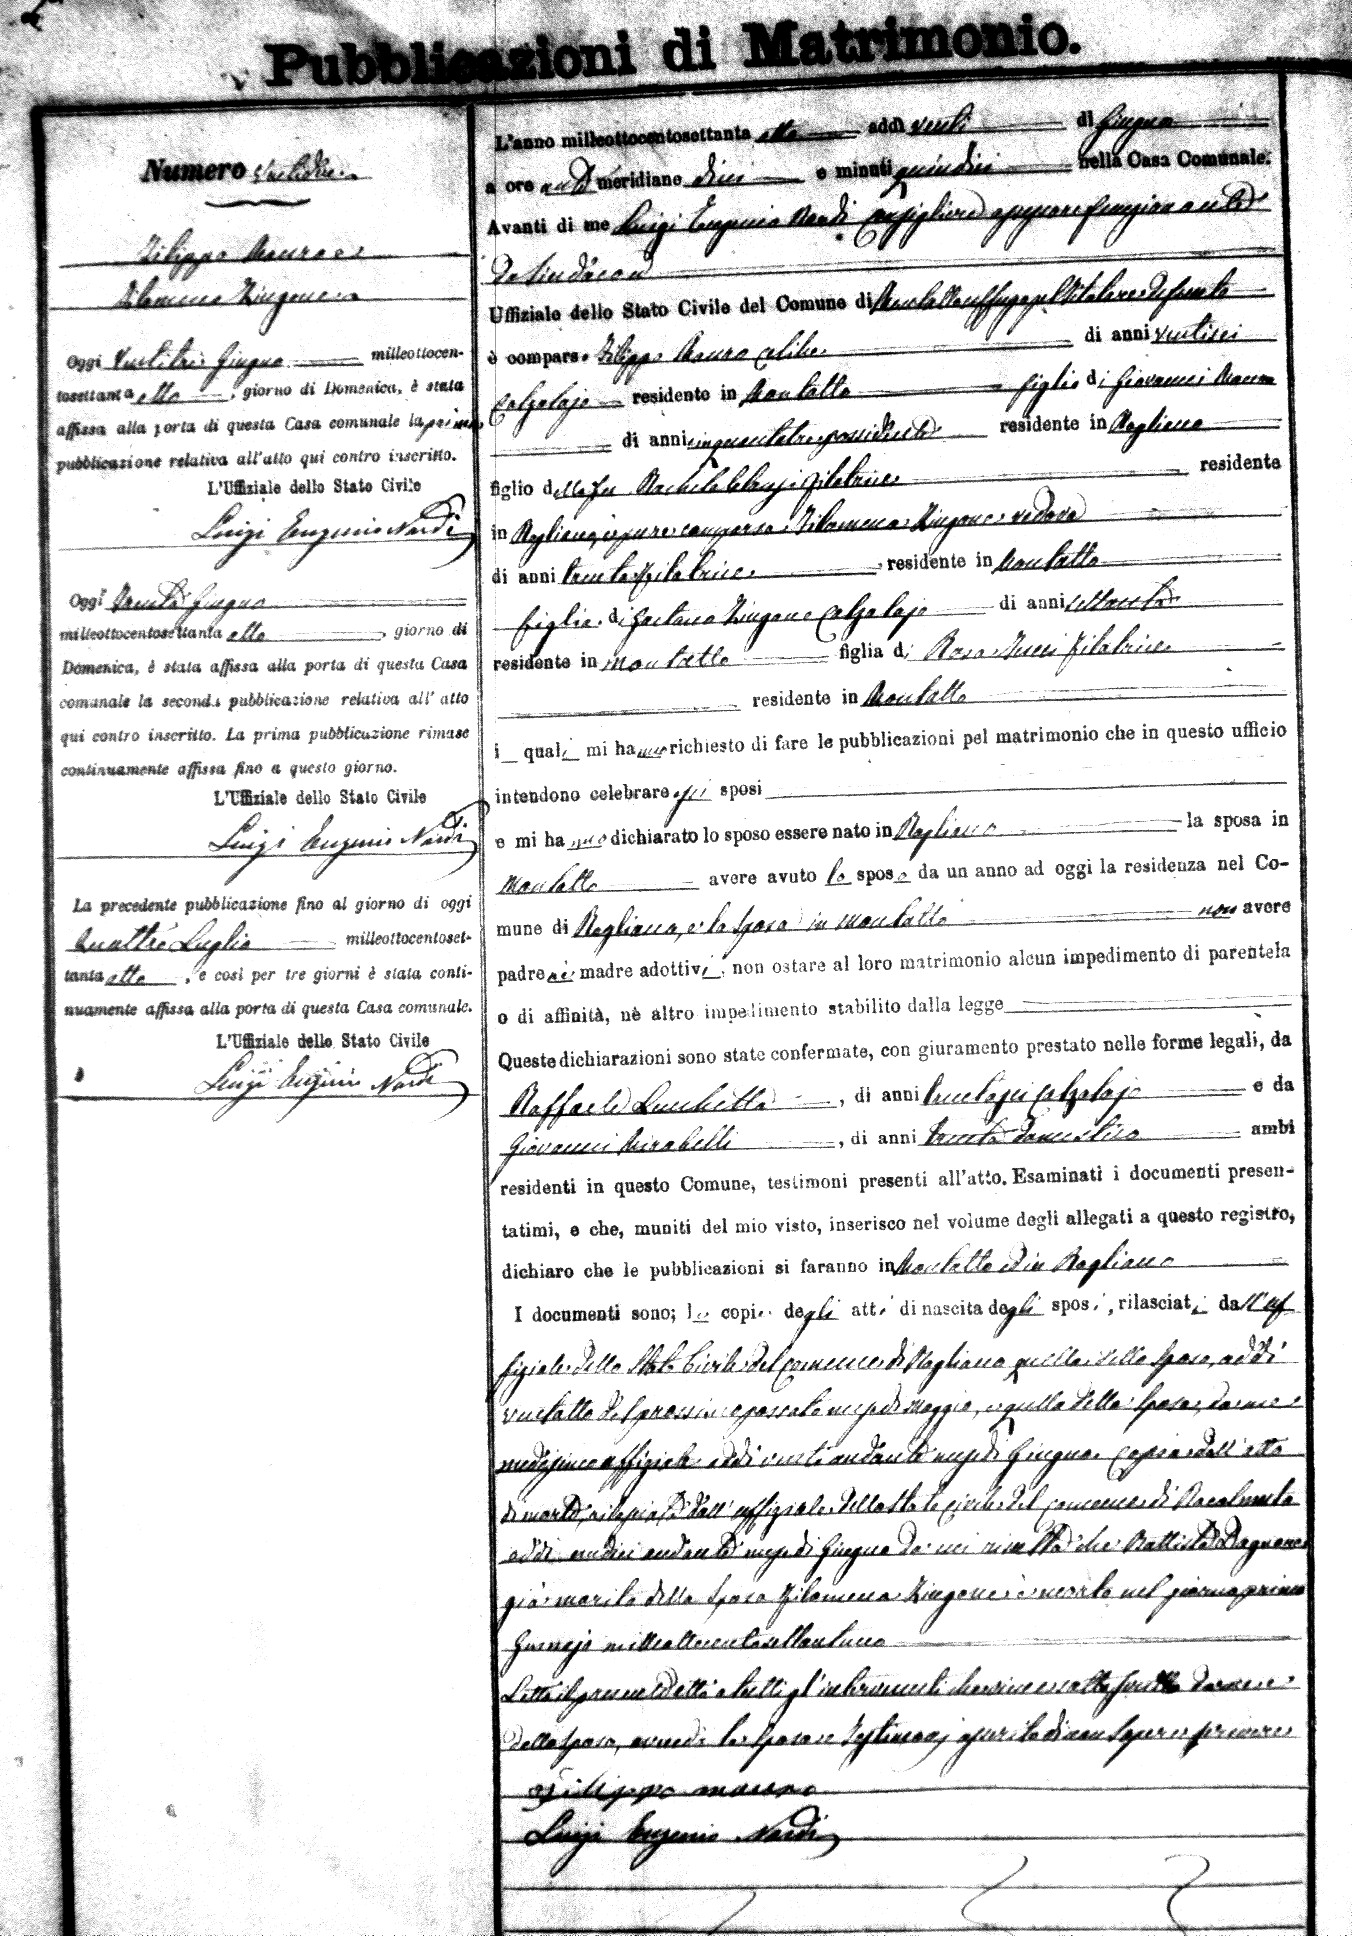 Pubblicazioni di Matrimonio.
Numero
Filippo Mauro e
Filomena Zingone
Oggi Ventitre Giugno milleottocen-
tosettanta otto, giorno di Domenica, è stata
affissa alla porta di questa Casa comunale la prima
pubblicazione relativa all'atto qui contro inscritto.
L'Uffiziale dello Stato Civile
Luigi Eugenio Nardi
Oggi Trenta Giugno
milleottocentosettanta otto, giorno di
Domenica, è stata affissa alla porta di questa Casa
comunale la seconda pubblicazione relativa all' atto
qui contro inscritto. La prima pubblicazione rimase
continuamente affissa fino a questo giorno.
L'Uffiziale dello Stato Civile
Luigi Eugenio Nardi
La precedente pubblicazione fino al giorno di oggi
Quattro Luglio milleottocentoset-
tanta otto, e così per tre giorni è stata conti-
nuamente affissa alla porta di questa Casa comunale.
L'Uffiziale dello Stato Civile
Luigi Eugenio Nardi
L'anno milleottocentosettanta otto addì venti di Giugno
a ore anti meridiane dieci e minuti quindici nella Casa Comunale.
Avanti di me Luigi Eugenio Nardi Consigliere anziano funzionante
da Sindaco
Uffiziale dello Stato Civile del Comune di Montalto Uffugo pel titolare defunto
è comparso Filippo Mauro celibe di anni ventisei
Calzolajo residente in Montalto figlio di Giovanni Mauro
di anni cinquantatre possidente residente in Rogliano
figlio della fu filatrice residente
in Rogliano, e pure comparsa Filomena Zingone vedova
di anni trenta filatrice, residente in Montalto
figlia di Gaetano Zingone Calzolajo di anni settanta
residente in Montalto figlia di Rosa filatrice
residente in Montalto
i quali mi hanno richiesto di fare le pubblicazioni pel matrimonio che in questo ufficio
intendono celebrare essi sposi
e mi hanno dichiarato lo sposo essere nato in Rogliano la sposa in
Montalto avere avuto lo sposo da un anno ad oggi la residenza nel Co-
mune di Rogliano, e la sposa in Montalto non avere
padre nè madre adottivi, non ostare al loro matrimonio alcun impedimento di parentela
o di affinità, nè altro impedimento stabilito dalla legge
Queste dichiarazioni sono state confermate, con giuramento prestato nelle forme legali, da
Raffaele Lucchetta, di anni trentasei calzolajo e da
Giovanni Mirabelli, di anni trenta domestico ambi
residenti in questo Comune, testimoni presenti all'atto. Esaminati i documenti presen-
tatimi, e che, muniti del mio visto, inserisco nel volume degli allegati a questo registro,
dichiaro che le pubblicazioni si faranno in Montalto ed in Rogliano
I documenti sono; le copie degli atti di nascita degli sposi, rilasciati dall'uf
fiziale dello Stato Civile del comune di Rogliano quella dello sposo, addì
ventotto del prossimo passato mese di Maggio, e quella della sposa, da me
medesimo uffiziale addì venti andante mese di Giugno. Copia dell'atto
di morte, rilasciata dall'uffiziale dello Stato Civile del comune di Racalmuto
addì undici andante mese di Giugno da cui risulta che Battista
già marito della sposa Filomena Zingone è morto nel giorno primo
Gennajo milleottocentosettantuno
Letto il presente atto a tutti gl'intervenuti che viene sottoscritto da me e
dallo sposo, avendo la sposa e testimonj asserito di non sapere scrivere
Filippo Mauro
Luigi Eugenio Nardi